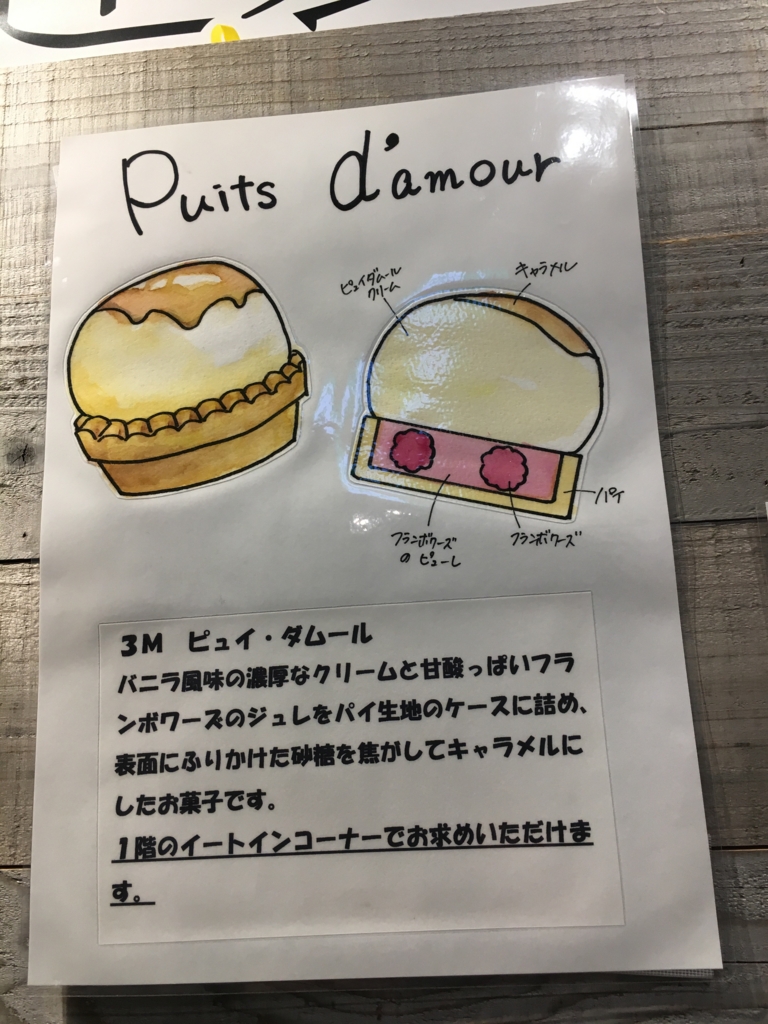 Puits d'amour
ピュイダムール
クリーム
キャラメル
パイ
フランボワーズ
の ピューレ
フランボワーズ
３Ｍ　ピュイ・ダムール
バニラ風味の濃厚なクリームと甘酸っぱいフラ
ンボワーズのジュレをパイ生地のケースに詰め、
表面にふりかけた砂糖を焦がしてキャラメルに
したお菓子です。
１階のイートインコーナーでお求めいただけま
す。